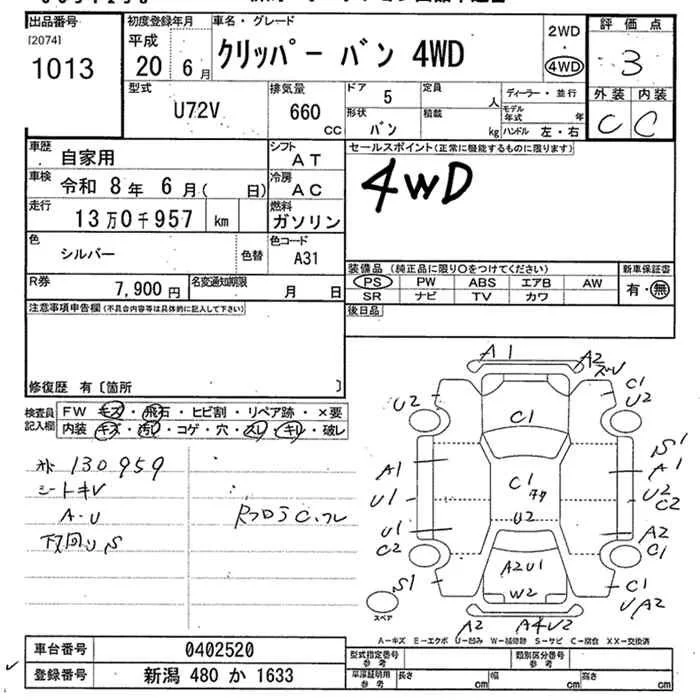 出品番号 初度登録年月 車名・グレード 2WD 評価点
[2074] 平成 クリッパー バン 4WD ・ 3
1013 20年 6月 4WD
型式 排気量 ドア 5 定員 人 ディーラー・並行 外装 内装
U72V 660 CC 形状 バン 積載 kg モデル年式 年 C C
ハンドル 左・右
車歴 自家用 シフト AT セールスポイント(正常に機能するものに限ります)
車検 令和 8年 6月( 日) 冷房 AC 4WD
走行 13万0千957 km 燃料 ガソリン
色 シルバー 色替 色コード A31
R券 7,900円 名変通知期限 月 日
装備品 (純正品に限り○をつけてください) 新車保証書
PS PW ABS エアB AW 有・無
SR ナビ TV カワ
注意事項申告欄(不具合内容等は具体的に記入して下さい) 後日品
修復歴 有〔箇所 〕
検査員記入欄 FW キズ・飛石・ヒビ割・リペア跡・×要
内装 キズ・汚レ・コゲ・穴・スレ・キレ・破レ
130959
シートキレ
A・U
下回りS
A1 A2
C1
U2 U2
C1
A1 C1 S1
A1
U1 U2 U2
C2
U1 A2
C2 C1
A2U1
S1 W2 C1
スペア UA2
A2 A4U2
A－キズ E－エクボ U－凹み W－補修跡 S－サビ C－腐食 XX－交換済
車台番号 0402520 型式指定番号 参考 類別区分番号 参考
登録番号 新潟 480 か 1633 車庫証明用 参考 長さ cm 幅 cm 高さ cm